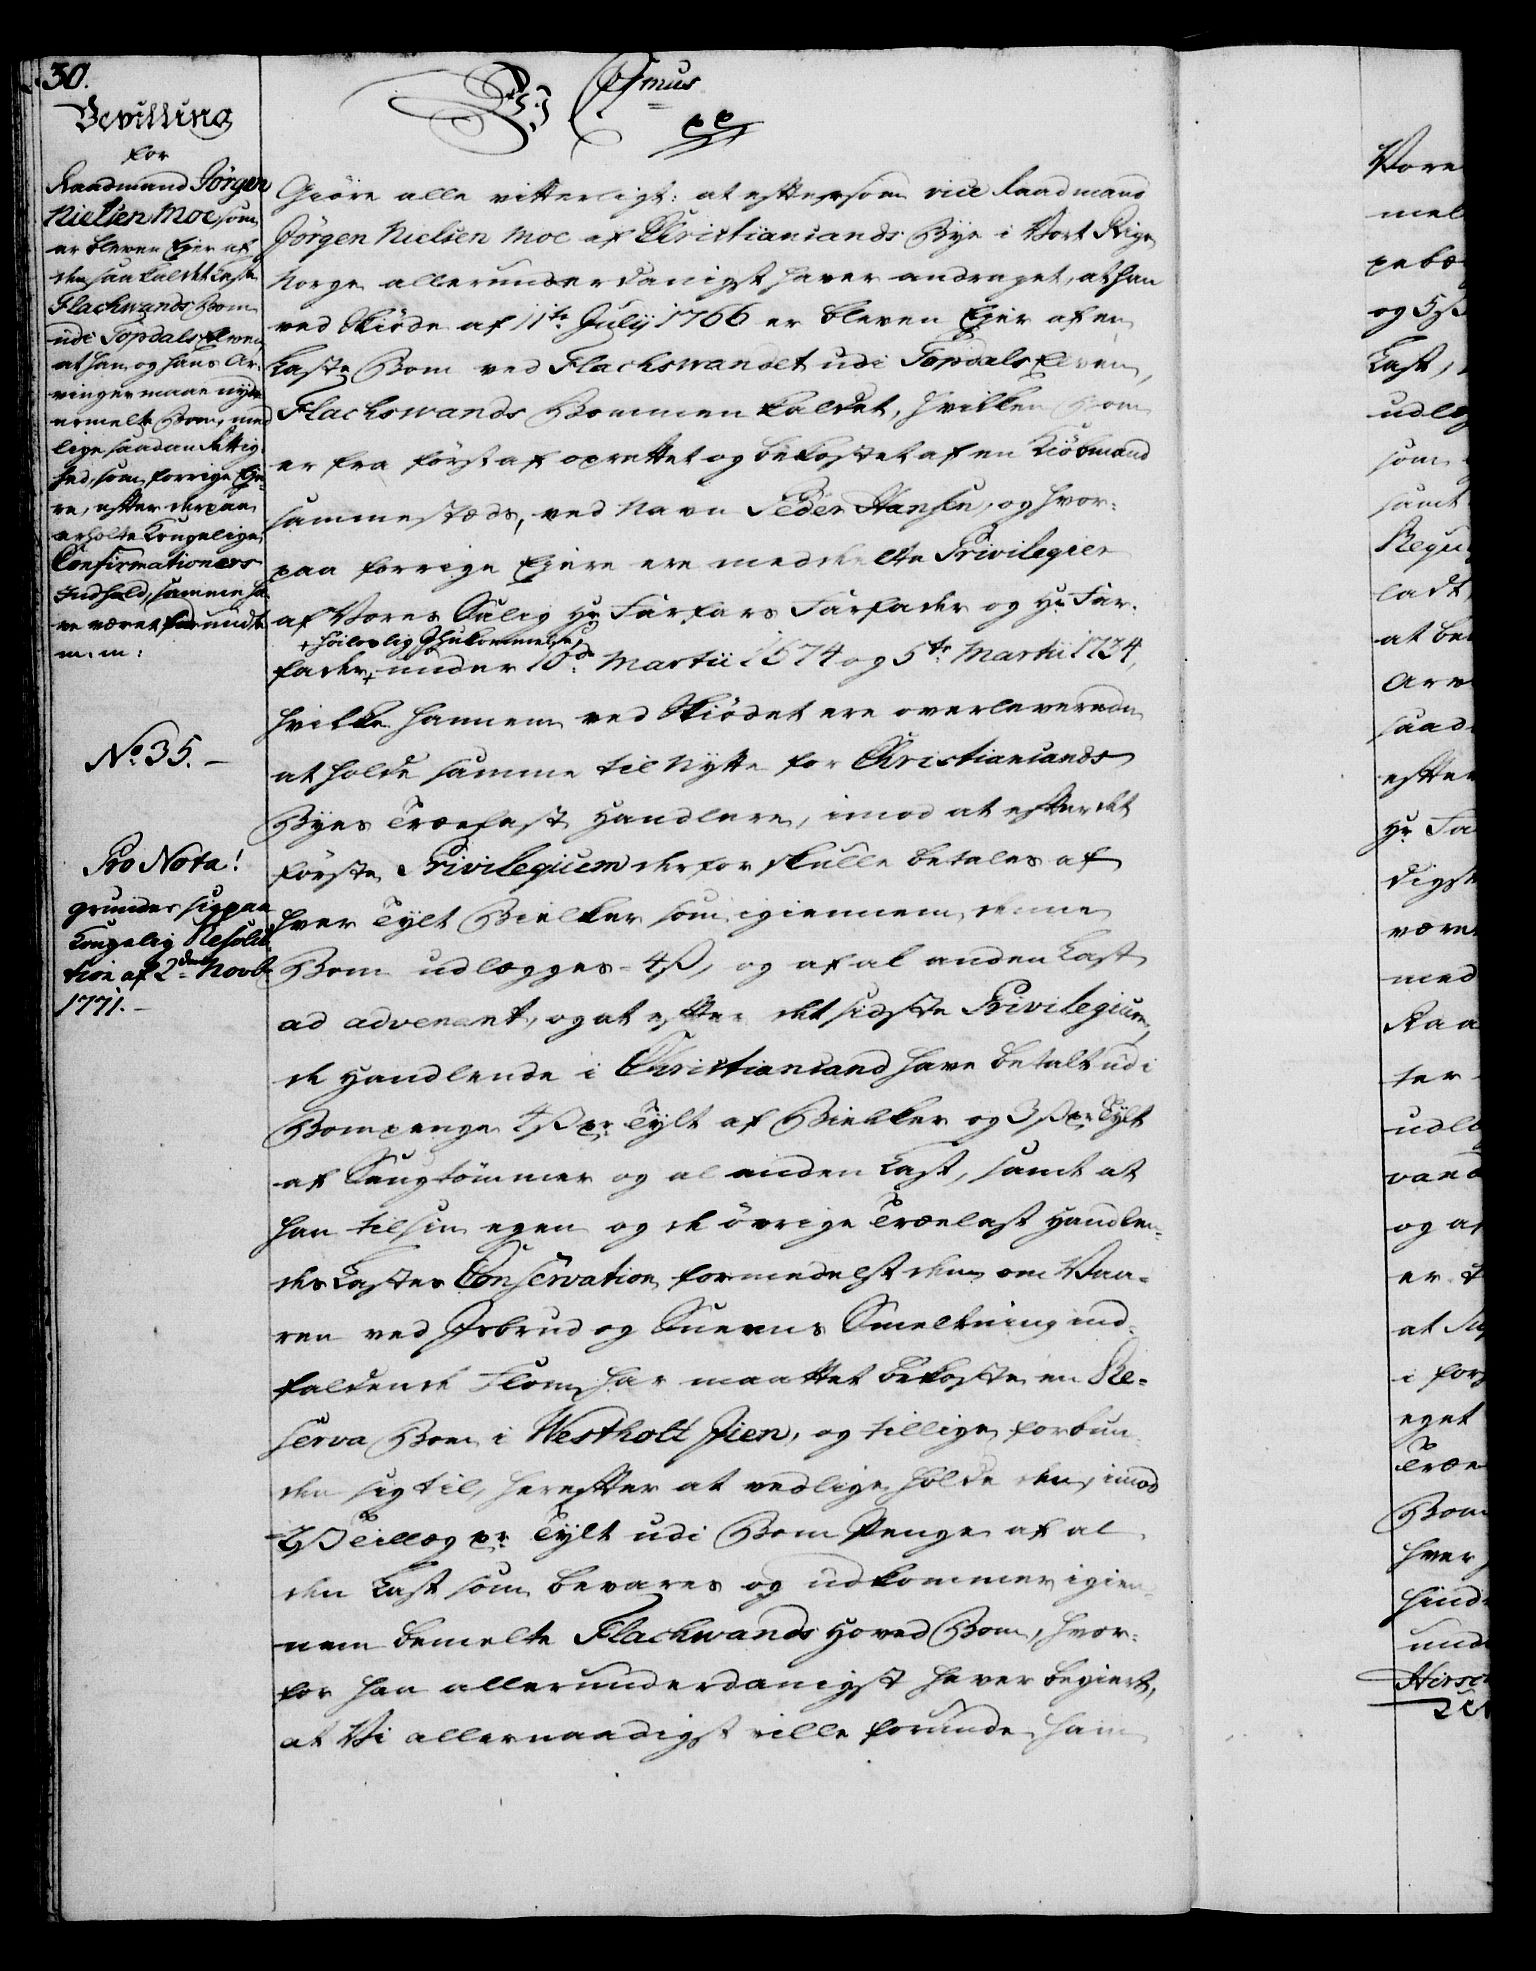 30.
Bevilling
for
Raadmand Jørgen
Nielsen Moe, som
er bleven Ejer af
den saa kaldet Laste
Flachwands Bom
udi Topdals Elven
at han og hans Ar-
vinger maae nyde
ermelte Bom, med
lige saadan Rettig-
hed, som forrige Eje-
re, efter derpaa
erholte Kongelige
Confirmationers
Indhold, samme ha-
ve været forundt
m. m:
No. 35.
Pro Nota!
grunder sig paa
Kongelig Resolu-
tion af 2den Novbr
1771.
C 7mus
Giøre alle vitterligt: at eftersom vice Raadmand
Jørgen Nielsen Moe af Christiansands Bye i Vort Rige
Norge allerunderdanigst haver andraget, at han
ved Skiøde af 11te July 1766 er bleven Ejer af en
Laste Bom ved Flachswandet udi Topdals Elven,
Flachswands Bommen kaldet, hvilken Bom
er fra først af oprettet og bekostet af en Kiøbmand
sammestæds, ved Navn Peder Hansen, og hvor-
paa forrige Ejere ere meddeelte Privilegier
af Vores Salig Hr Farfars Farfader og Hr Far-
+ Høilovlig Ihukommelse,
fader+ under 10de Martii 1674 og 5te Martii 1734,
hvilke hannem ved Skiødet ere overleverede
at holde samme til Nytte for Christiansands
Byes Trælast Handlere, imod at efter det
første Privilegium derfor skulle betales af
hver Tylt Bielker som igiennem denne
Bom udlægges 4 ß, og af al anden Last
ad advenant, og at efter det sidste Privilegium
de Handlende i Christiansand have betalt udi
Bompenge 4 ß pr Tylt af Bielker og 3 ß pr Tylt
af Saugtømmer og al anden Last, samt at
han til sin egen og de øvrige Trælast Handlen-
des Lastes Conservation formedelst den om Vaa-
ren ved Isbrud og Sneens Smeltning ind-
faldende Flom har maattet bekoste en Re-
serva Bom i Westholt Jien, og tillige forbun-
den sig til, herefter at vedlige holde den, imod
2 ß Tillæg pr Tylt udi Bom Penge af al
den Last som bevares og udkommer igien-
nem bemelte Flachwands Hoved Bom, hvor-
for han allerunderdanigst haver begiert,
at Vi allernaadigst ville forunde ham
Vore
mel
og 5 ß
Last,
udlæg
som
samt
Regu
ladt
at be
Arv
saad
efter
Hr Fa
digst
være
med
Raa
ter
udlæ
vand
og af
er
at
i for
eget
Træ
Bom
hver
Hind
und
Hirsch